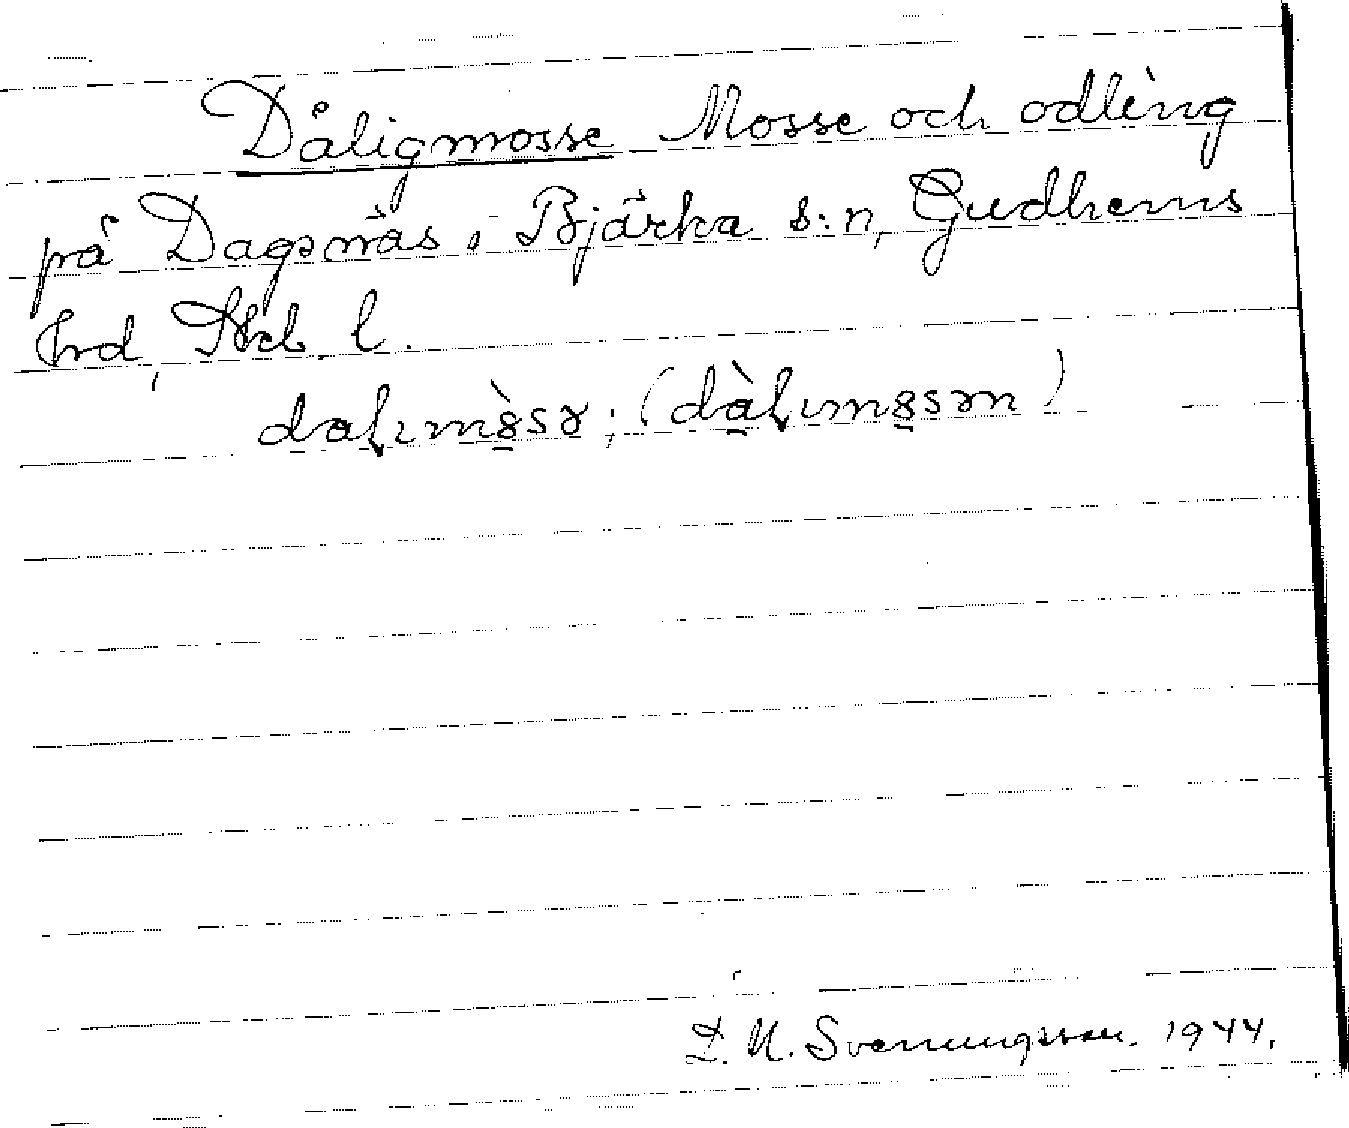 Dåligmosse Mosse och odling
på Dagsnäs, Bjärka s:n, Gudhems
hrd, Skb. l.
daḷımòsə; (dàḷımosən)
S. N. Svenungsson. 1944.